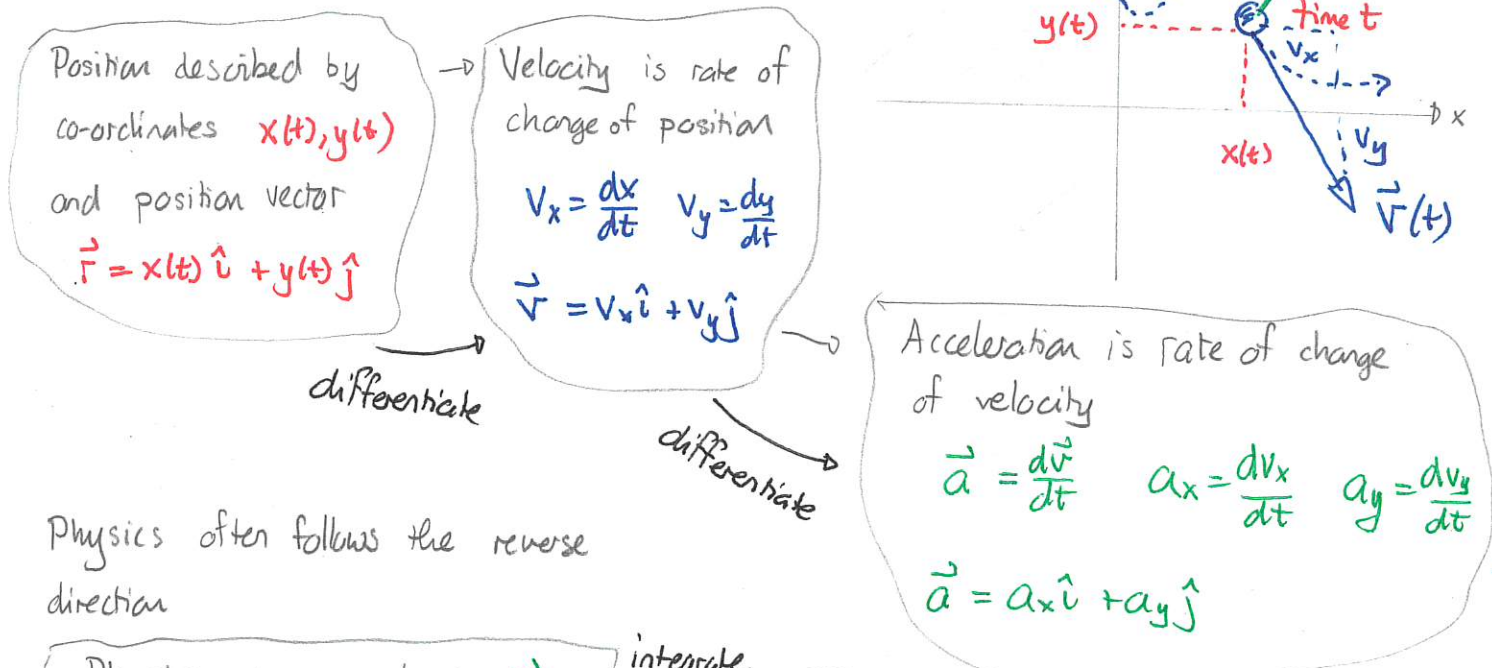 Position described by
co-ordinates x(t), y(t)
and position vector
r⃗ = x(t) î + y(t) ĵ
differentiate
→ Velocity is rate of
change of position
Vx = dx/dt Vy = dy/dt
v⃗ = Vx î + Vy ĵ
differentiate
y(t)
time t
Vx
x
x(t)
Vy
v⃗(t)
Acceleration is rate of change
of velocity
a⃗ = dv⃗/dt ax = dvx/dt ay = dvy/dt
a⃗ = ax î + ay ĵ
Physics often follows the reverse
direction
integrate